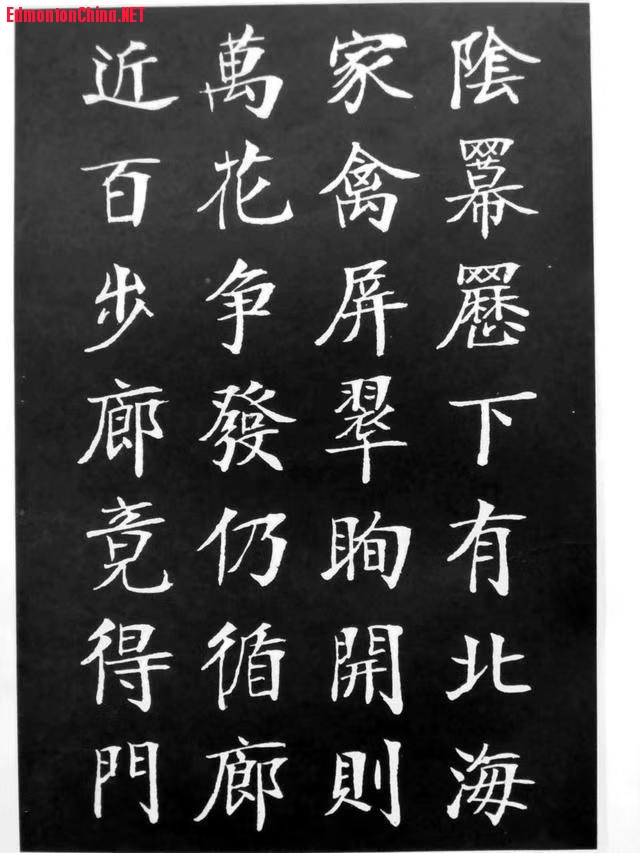 EdmontionChina.NET
陰羃𦋅下有北海
家禽屏翠眴開則
萬花争發仍循廊
近百步廊竟得門